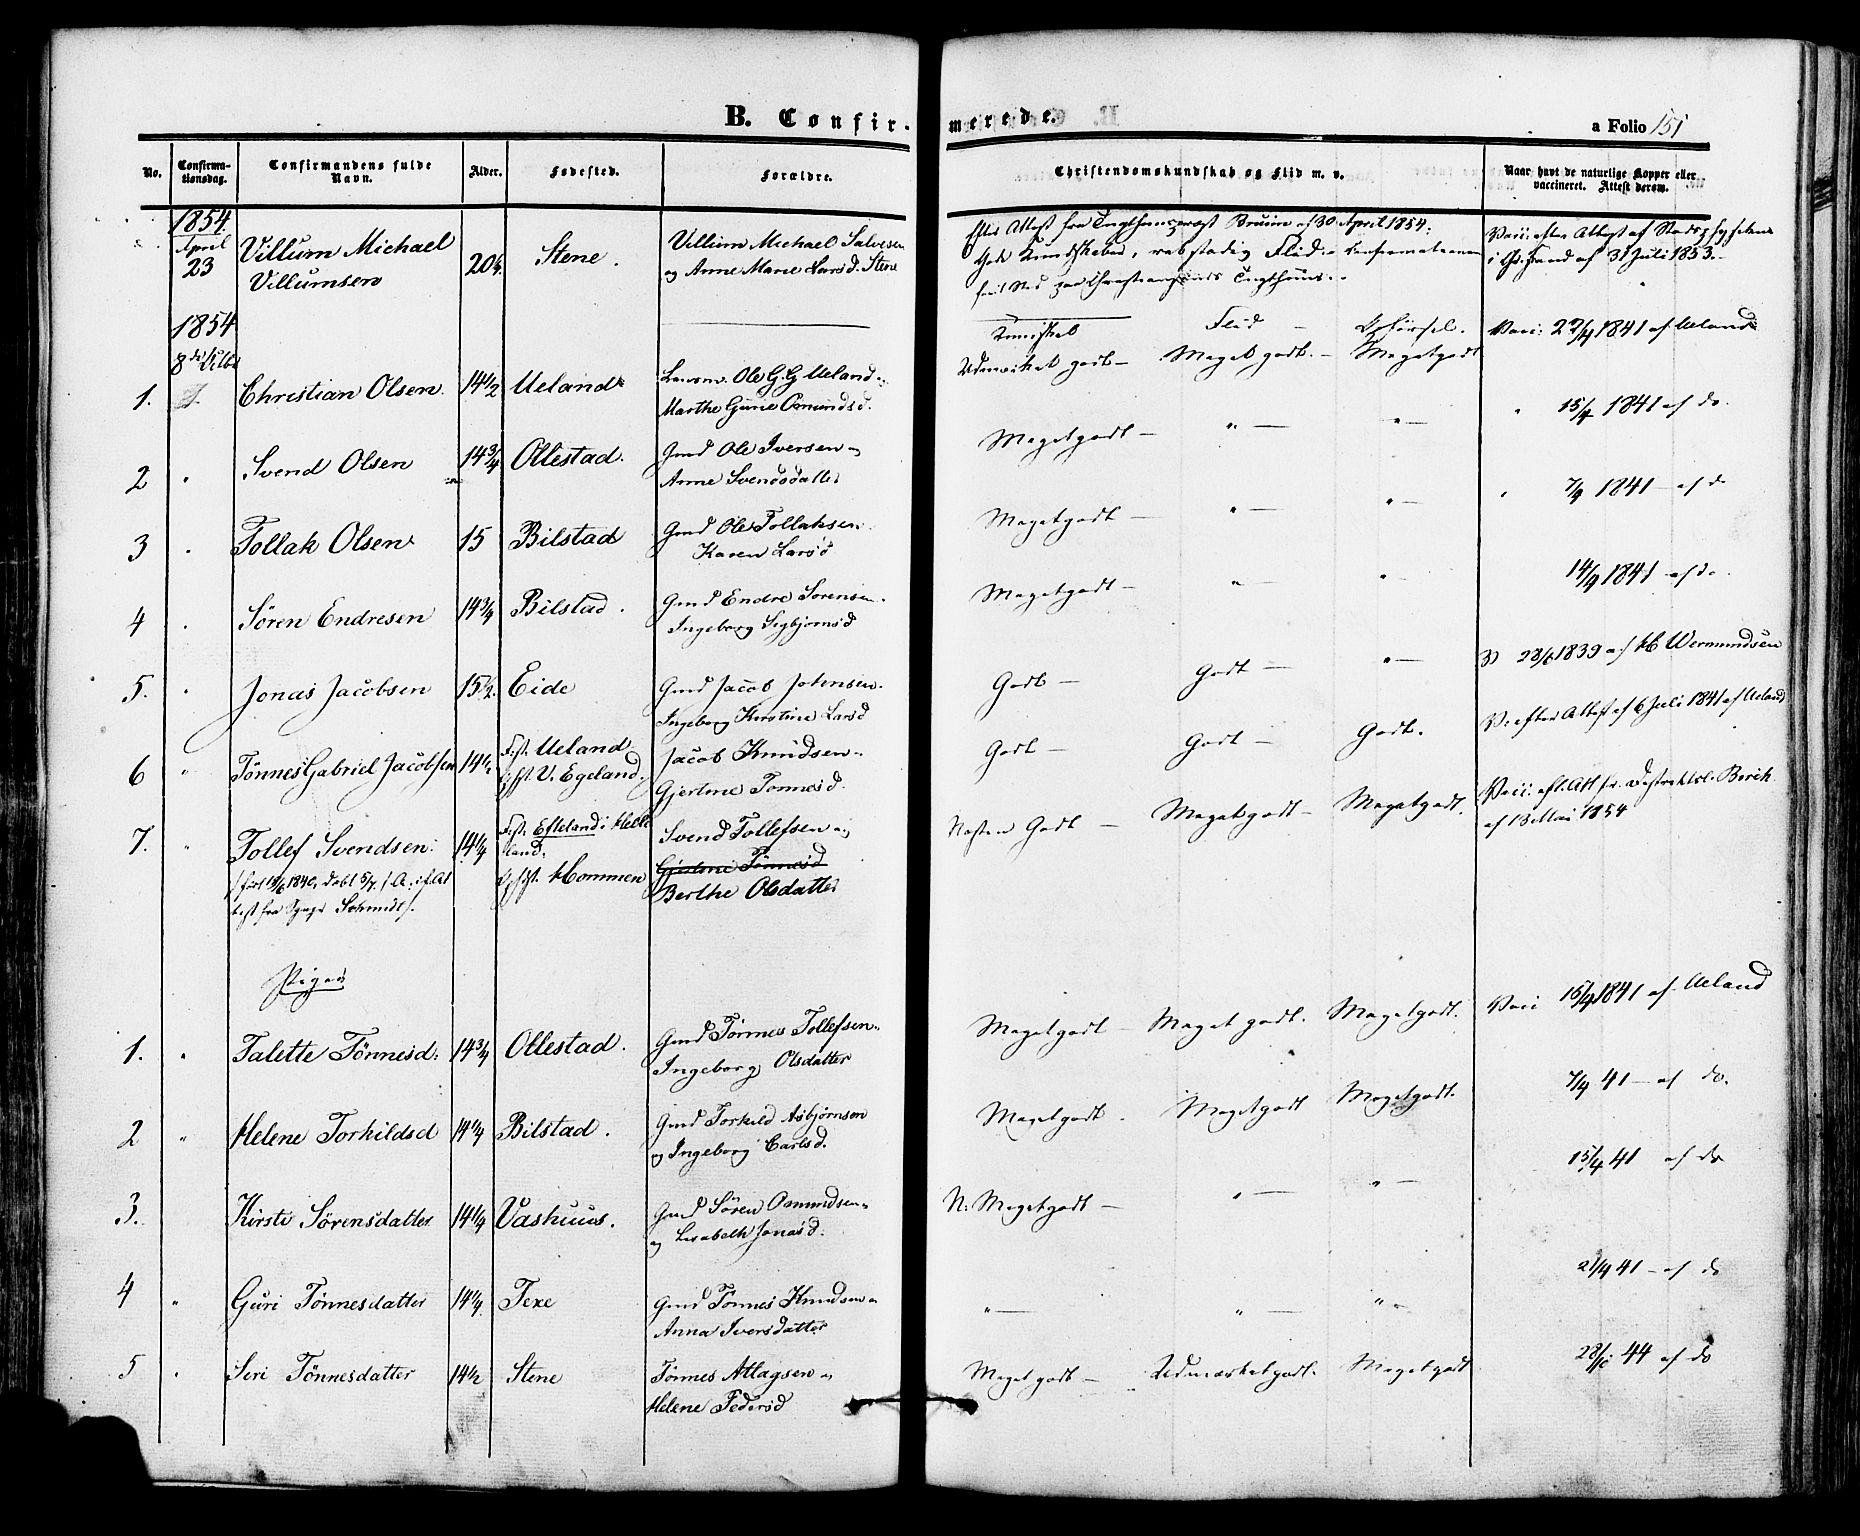 B. Confirmerede.
a Folio 151
No.
Confirma-
tionsdag.
Confirmandens fulde
Navn.
Alder.
Fødested.
Forældre.
Christendomskundskab og Flid m. v.
Naar havt de naturlige Kopper eller
vaccineret. Attest derom.
1854
April
23
Villum Michael
Villumsen
20
Stene.
Villum Michael Salvesen
og Anne Marie Larsd. Stene
Efter Attest fra Tugthuuspræst Bruun af 30 April 1854:
Gode Kundskaber, retstadig Flid.
paa Christianssands Tugthuus.
Vacc: efter Attest af Stadsphysikus
i Ch.sand af 31 Juli 1853.
1854
8de Octbr
Kundskab Flid Opførsel.
1. Christian Olsen. 14½ Ueland
Lensm. Ole G.G Ueland
Marthe Gurie Osmundsd.
Udmærket godt – Meget godt. – Megetgodt
Vacc: 22/4 1841 af Ueland
2 " Svend Olsen 14¾ Ollestad.
Gmd Ole Iversen
Anne Svendsdatter
Megetgodt – " – " –
" 15/4 1841 af do.
3 " Tollak Olsen 15 Bilstad
Gmd Ole Tollaksen
Karen Larsd
Megetgodt – " – " –
" 7/9 1841 – af do
4 " Sören Endresen 14¾ Bilstad.
Gmd Endre Sörensen
Ingeborg Sigbjørnsd
Megetgodt – " – " –
14/9 1841 – af do.
5. " Jonas Jacobsen 15½ Eide
Gmd Jacob Johnsen
Ingeborg Kirstine Larsd
Godt – Godt – " –
28/6 1839 af H Wermundsen
6 " Tönnes Gabriel Jacobsen 14½
F.st. Ueland
Opfst. V. Egeland.
Jacob Knudsen
Gjertine Tönnesd.
Godt – Godt – Godt.
V. efter Attest af 6 Juli 1841 af Ueland
7. " Tollef Svendsen. 14¼
født 15/6 1840, døbt 5/7
test fra Sgnpr Schmidt.
F.st. Efteland i Helle
land.
Opfst. Hommen
Svend Tollefsen og
Gjertine Tönnesd
Berthe Olsdatter
Næsten Godt – Megetgodt – Megetgodt.
Vacc. eft. Att fr. Districtsl. Borch
af 13 Mai 1854
Piger
1. " Talette Tönnesd. 14¾ Ollestad.
Gmd Tönnes Tollefsen
Ingeborg Olsdatter
Megetgodt – Meget godt. Megetgodt.
Vacc 15/4 1841 af Ueland
2 " Helene Torkildsd 14¼ Bilstad.
Gmd Torkild Asbjørnsen
og Ingeborg Carlsd.
Megetgodt. Megetgodt Megetgodt.
7/9 41 – af do.
3. Kirsti Sörensdatter 14¼ Vashuus.
Gmd Sören Osmundsen
og Lisabeth Jonasd.
N. Megetgodt – " – " –
15/4 41 af do
4 " Guri Tönnesdatter 14¼ Texe
Gmd Tönnes Knudsen
Anna Iversdatter
" – " – " –
21/9 41 – af do
5 " Siri Tönnesdatter 14½ Stene
Tönnes Atlagsen
Helene Pedersd
Meget godt – Udmærketgodt. Megetgodt
44 af do